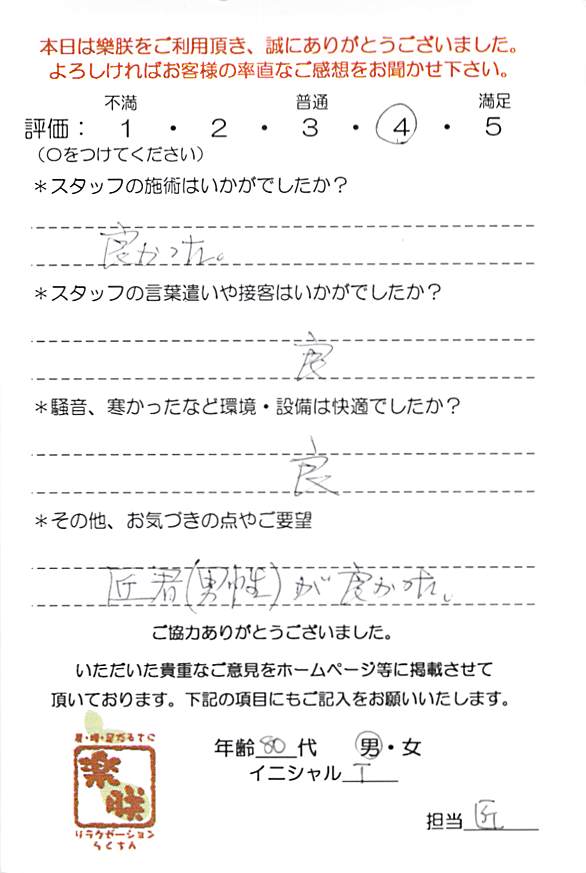 本日は樂朕をご利用頂き、誠にありがとうございました。
よろしければお客様の率直なご感想をお聞かせ下さい。
不満 普通 満足
評価： 1 ・ 2 ・ 3 ・ 4 ・ 5
（〇をつけてください）
＊スタッフの施術はいかがでしたか？
良かった。
＊スタッフの言葉遣いや接客はいかがでしたか？
良
＊騒音、寒かったなど環境・設備は快適でしたか？
良
＊その他、お気づきの点やご要望
匠者(男性)が良かった。
ご協力ありがとうございました。
いただいた貴重なご意見をホームページ等に掲載させて
頂いております。下記の項目にもご記入をお願いいたします。
年齢 80 代 男・女
イニシャル T
樂朕
リラクゼーション
らくちん
担当 匠